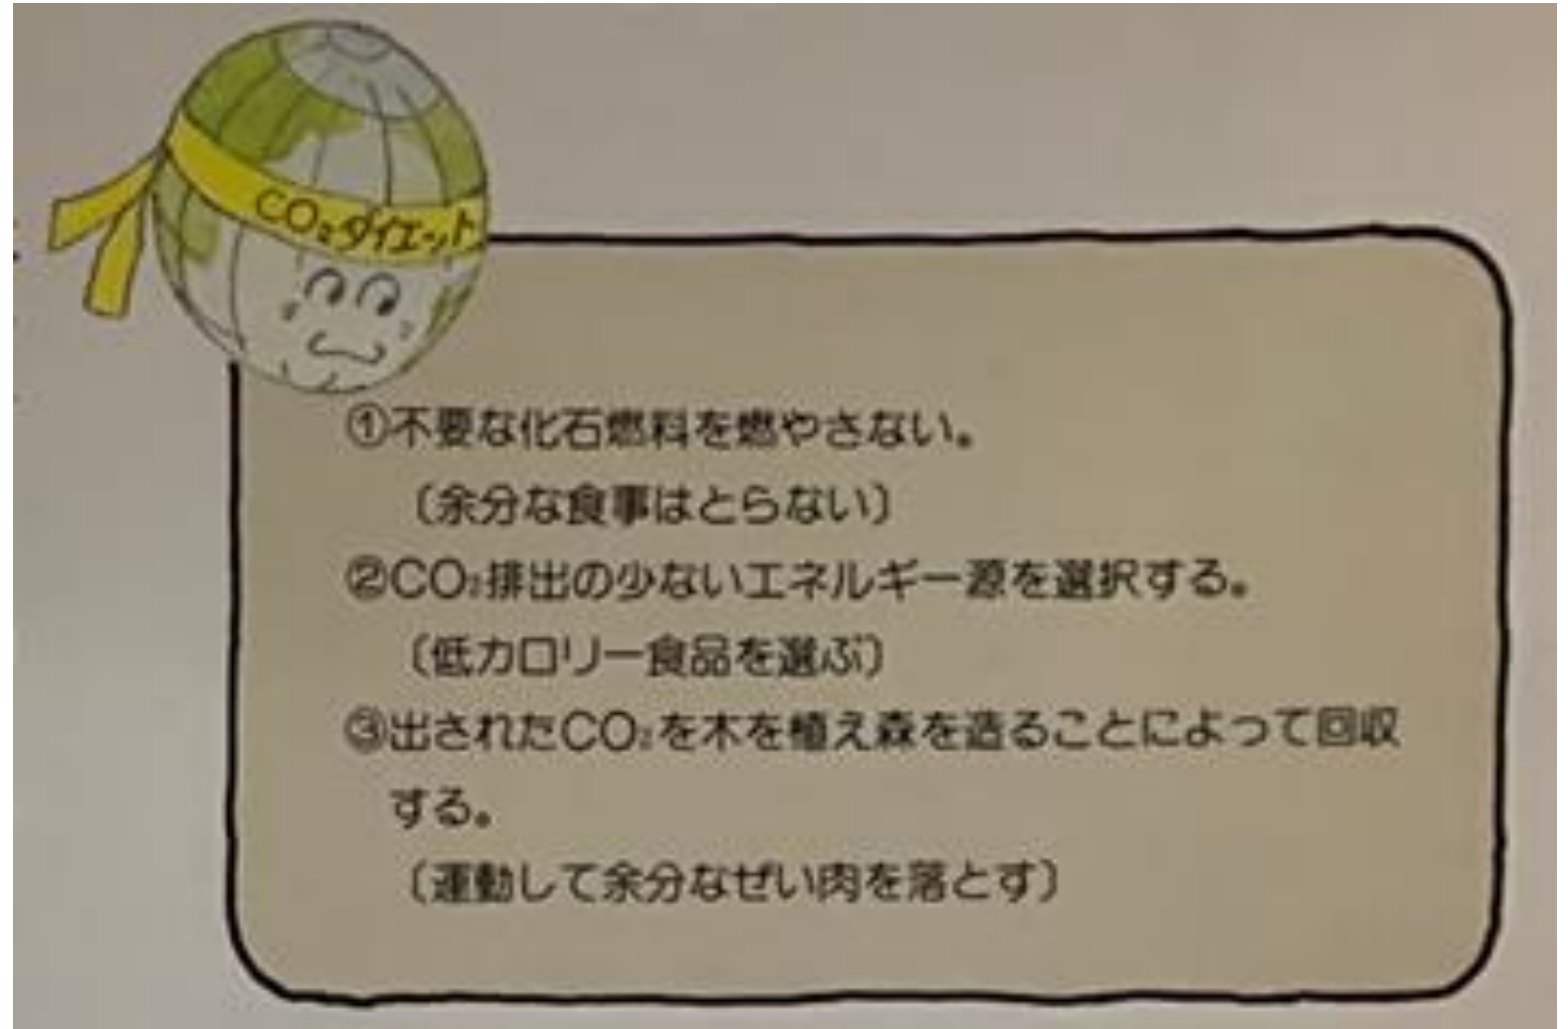 CO₂ダイエット
①不要な化石燃料を燃やさない。
〔余分な食事はとらない〕
②CO₂排出の少ないエネルギー源を選択する。
〔低カロリー食品を選ぶ〕
③出されたCO₂を木を植え森を造ることによって回収
する。
〔運動して余分なぜい肉を落とす〕